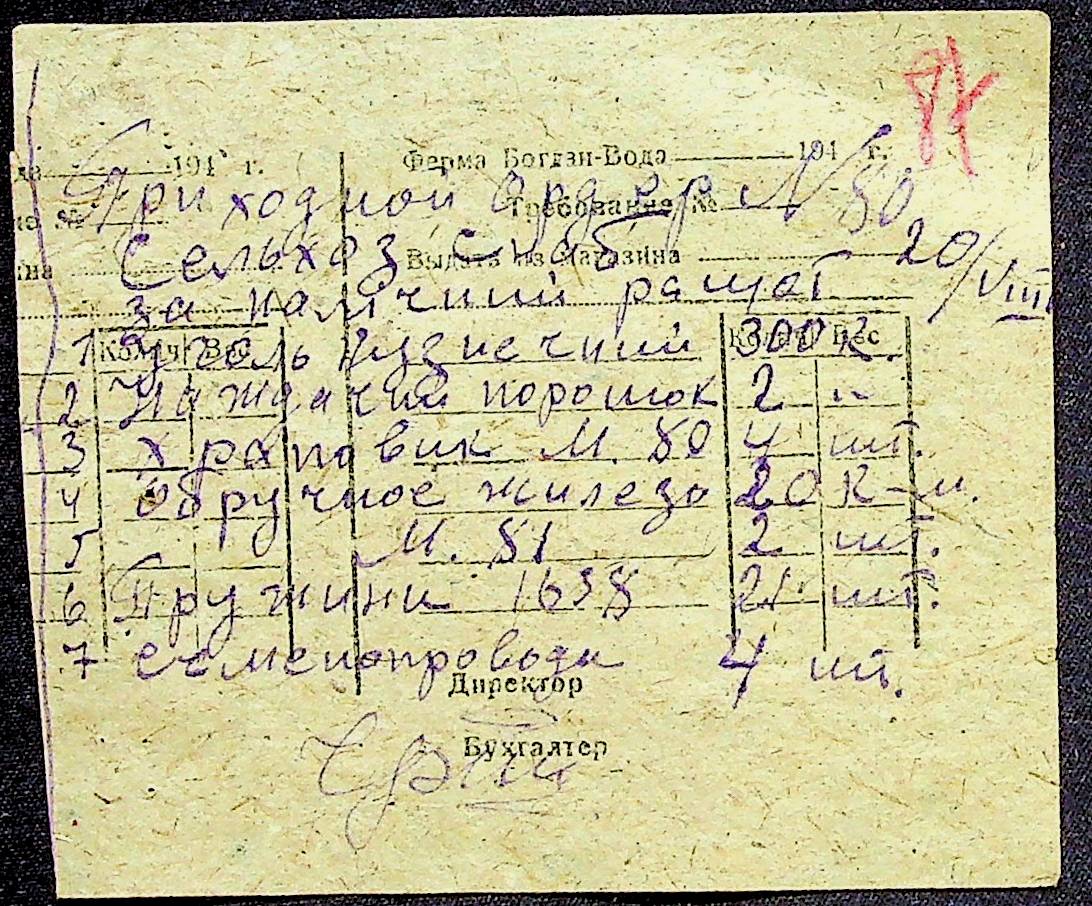 87
да 194 г. Ферма Богдзи-Вода 194 г.
Приходной Ордер N 80
№ Требование №
Сельхоз Снаб 20/VIII
ина Выдать из магазина
за наличний расщот
Колич. Вес Колич. Вес
1 Уголь кузнечний 300 к.
2 Наждачний порошок 2 "
3 храповик М. 80 4 шт.
4 Обручное жилезо 20 к-м.
5 М. 81 2 шт.
6 Пружини 1638 21 шт.
7 семенопровода 4 шт.
Директор
Бухгалтер